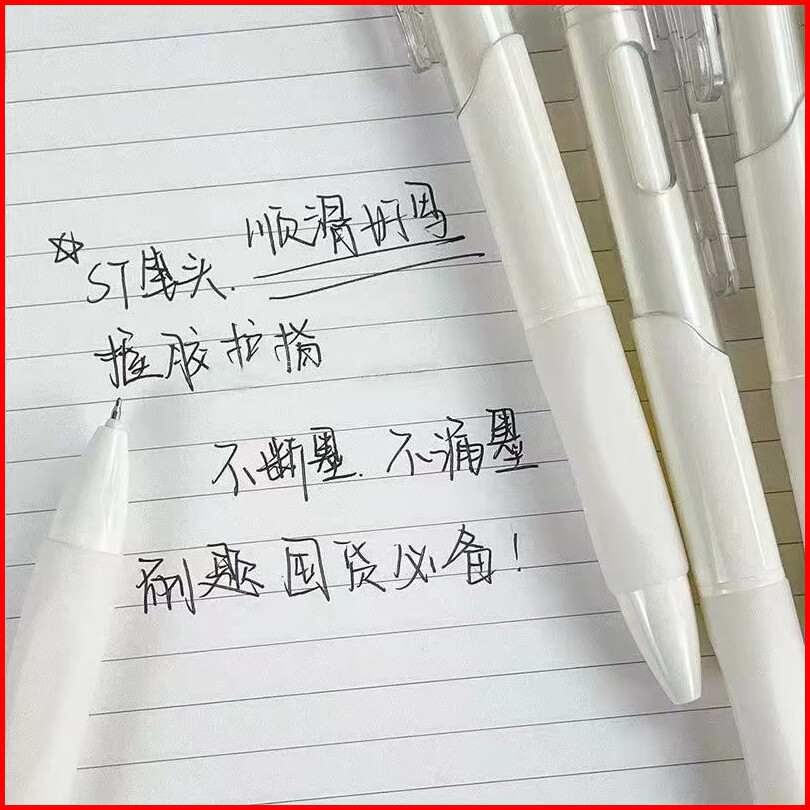 ☆ST笔头. 顺滑好写
按胶拉擦
不断墨. 不漏墨
刷题囤货必备!